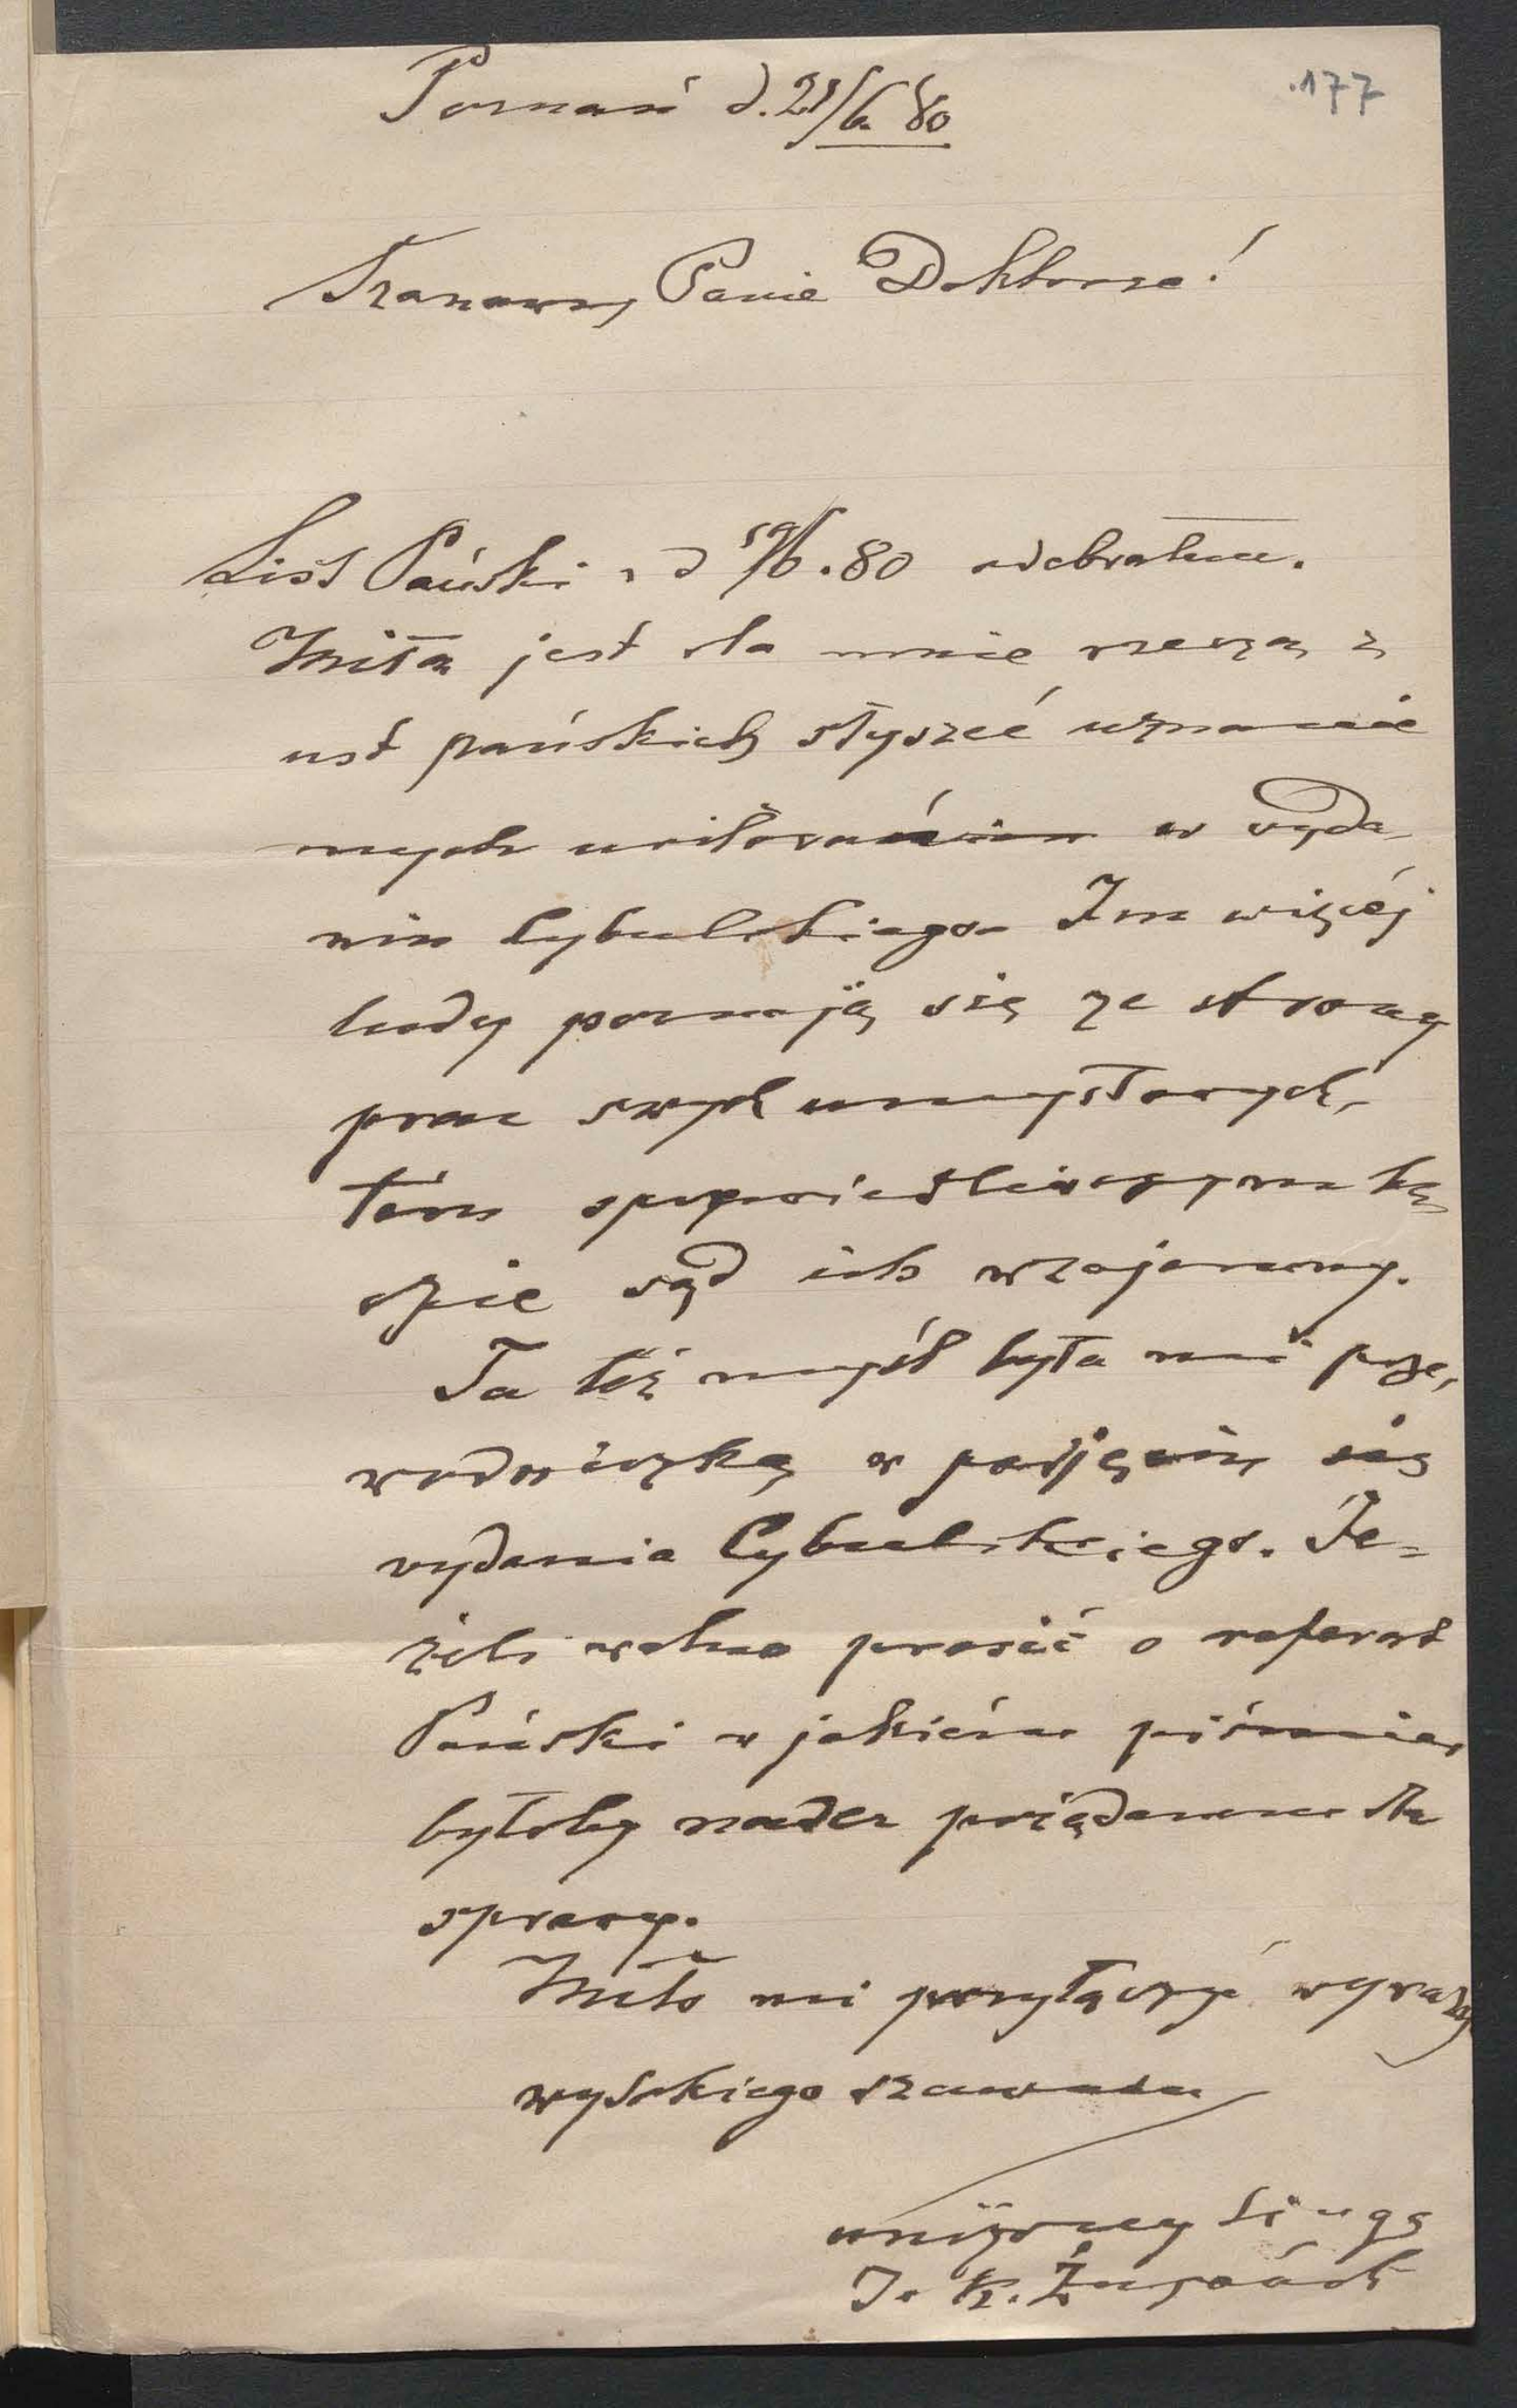 177
Poznań d. 21/6 80
Szanowny Panie Doktorze!
List Pański z d 19/6.80 odebrałem.
Miłą jest dla mnie rzeczą z
ust pańskich słyszeć uznanie
mych usiłowań w wyda-
niu Cybulskiego. Im więcéj
ludy poznają się ze strony
prac swych umysłowych,
tém sprawiedliwszym bę
dzie sąd ich wzajemny.
Ta też myśl była mi prze,
wodniczką w podjęciu się
wydania Cybulskiego. Je=
żeli wolno prosić o referat
Pański w jakiém piśmie,
byłoby nader pożądanem dla
sprawy.
Miło mi przyłączyć wyrazy
wysokiego szacunku
uniżony sługa
J. K. Żupański